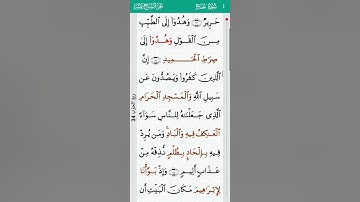 حَرِيرٌ ﴿٢٣﴾ وَهُدُوٓا۟ إِلَى ٱلطَّيِّبِ
مِنَ ٱلْقَوْلِ وَهُدُوٓا۟ إِلَىٰ
صِرَٰطِ ٱلْحَمِيدِ ﴿٢٤﴾ إِنَّ
ٱلَّذِينَ كَفَرُوا۟ وَيَصُدُّونَ عَن
سَبِيلِ ٱللَّهِ وَٱلْمَسْجِدِ ٱلْحَرَامِ
ٱلَّذِى جَعَلْنَٰهُ لِلنَّاسِ سَوَآءً
ٱلْعَٰكِفُ فِيهِ وَٱلْبَادِ وَمَن يُرِدْ
فِيهِ بِإِلْحَادٍۭ بِظُلْمٍ نُّذِقْهُ مِنْ
عَذَابٍ أَلِيمٍ ﴿٢٥﴾ وَإِذْ بَوَّأْنَا
لِإِبْرَٰهِيمَ مَكَانَ ٱلْبَيْتِ أَن